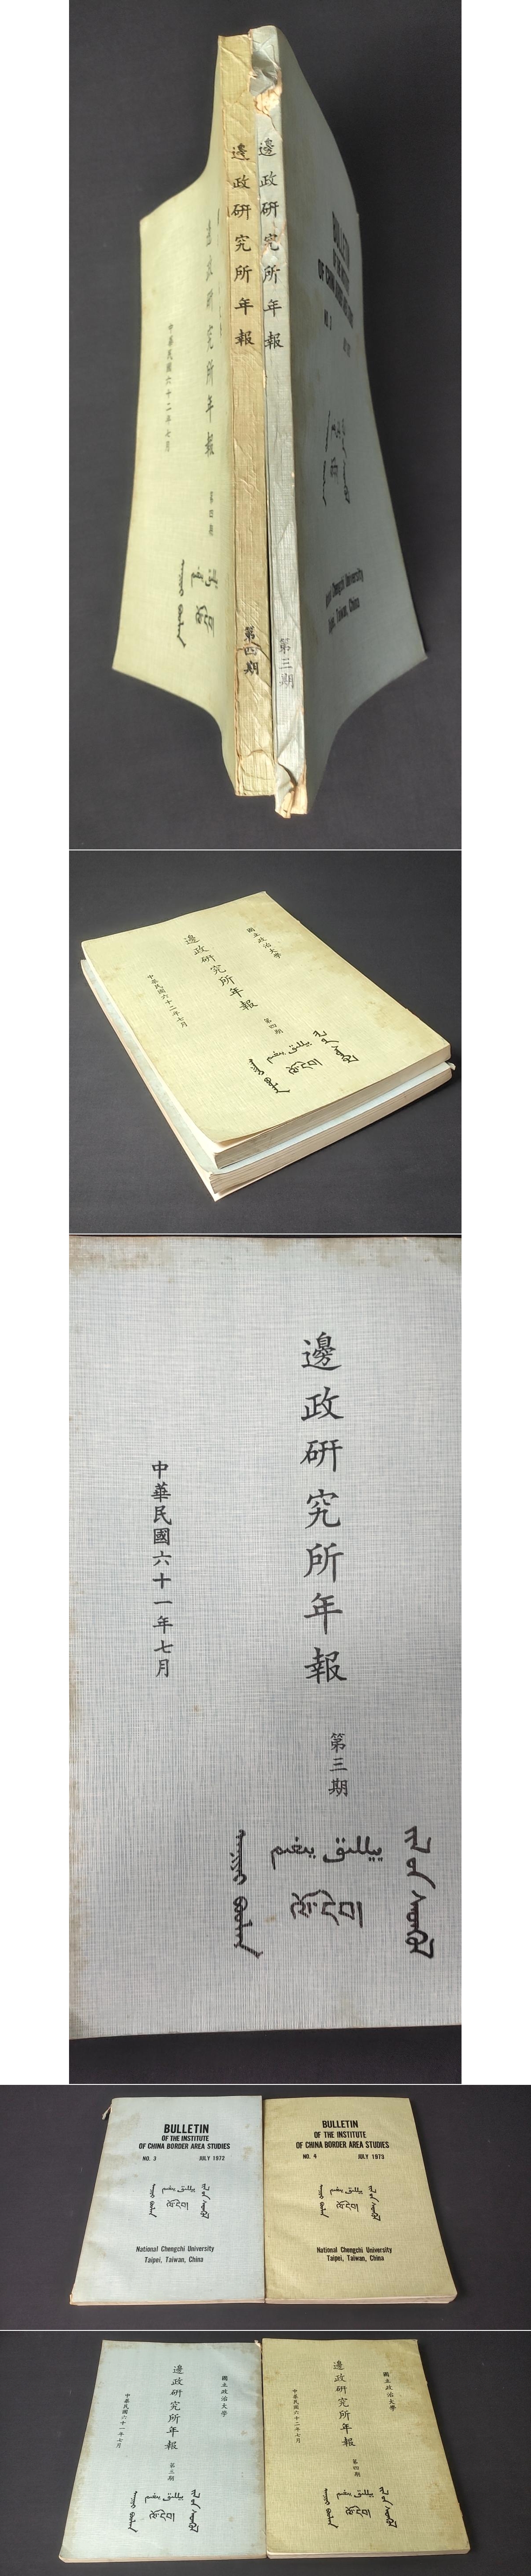 邊政研究所年報
第四期
邊政研究所年報
第三期
邊政研究所年報
第四期
中華民國六十二年七月
BULLETIN
NO. 3
Chengchi University
Taiwan, China
國立政治大學
邊政研究所年報
第四期
中華民國六十二年七月
ལོ་དེབ།
邊政研究所年報
第三期
中華民國六十一年七月
ལོ་དེབ།
BULLETIN
OF THE INSTITUTE
OF CHINA BORDER AREA STUDIES
NO. 3 JULY 1972
ལོ་དེབ།
National Chengchi University
Taipei, Taiwan, China
BULLETIN
OF THE INSTITUTE
OF CHINA BORDER AREA STUDIES
NO. 4 JULY 1973
ལོ་དེབ།
National Chengchi University
Taipei, Taiwan, China
國立政治大學
邊政研究所年報
第三期
中華民國六十一年七月
ལོ་དེབ།
國立政治大學
邊政研究所年報
第四期
中華民國六十二年七月
ལོ་དེབ།